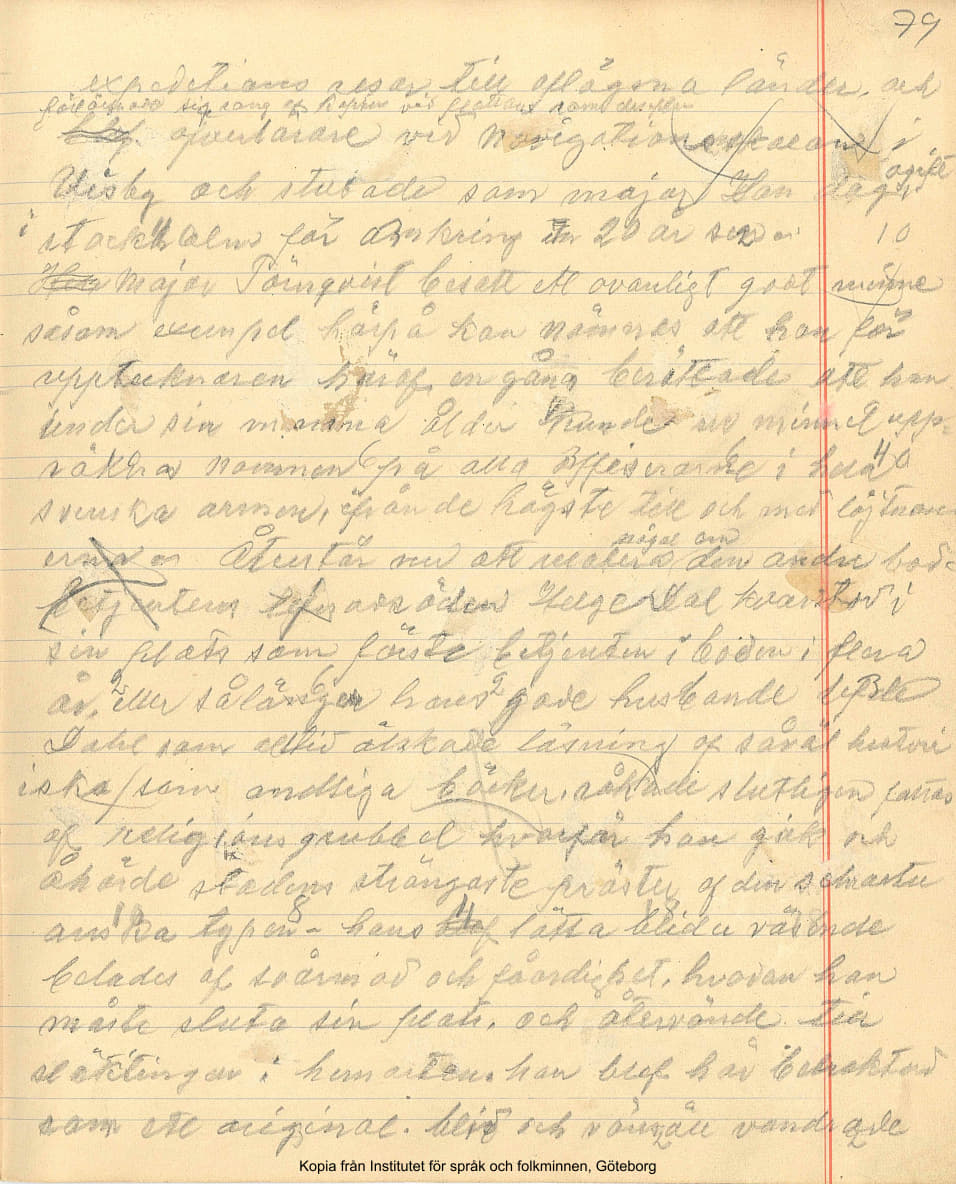 79
expeditions resor till aflägsna länder, och
förvärfvade sig rang af kapten vid flottan samt
blef öfverlärare vid Navigationsskolan i
Visby och slutade som major Han dog ogift
i Stockholm för omkring 20 år sedan 10
Major Törnqvist besatt ett ovanligt godt minne
såsom exempel härpå kan nämnas att han för
upptecknaren häraf en gång berättade att han
under sin mina ålder kunde ur minnet upp-
räkna namnen på alla officerarne i hela 40
svenska armen, ifrån de högste till och med löjtnan
erna Återstår nu att relatera något om den andre bod-
betjentens levnadsöden Helge Dal kvarstod i
sin plats som förste betjenten i boden i flera
år, eller så länge hans gode husbonde lefde
Dahl som alltid älskade läsning af såväl histori
iska som andliga böcker, råkade slutligen fattas
af religionsgrubbel hvarför han gick och
åhörde stadens strängaste präster af den schartu
anska typen - hans lätta blida väsende
belades af svårmod och fåordighet, hvadan han
måste sluta sin plats, och återvände till
släktingar i hemorten. han blef här betraktad
som ett original. blid och vänsäll vandrade
Kopia från Institutet för språk och folkminnen, Göteborg